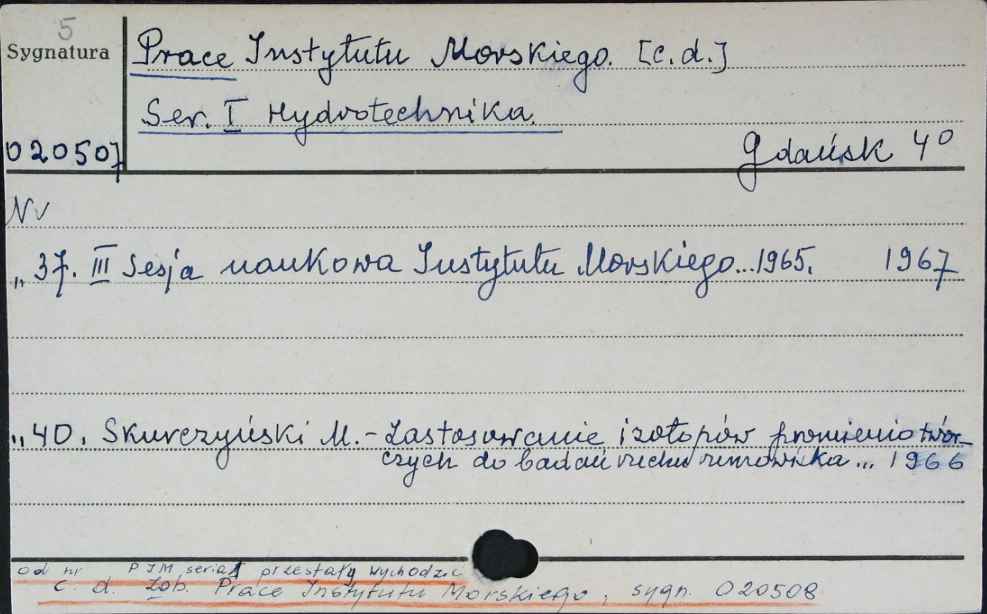 5
Sygnatura
Prace Instytutu Morskiego. [c.d.]
Ser. I Hydrotechnika.
020507
Gdańsk 4º
Nr
„ 37. III Sesja naukowa Instytutu Morskiego...1965. 1967
„ 40. Skurczyński M. - Zastosowanie izotopów promieniotwór-
czych do badań ruchu rumowiska ... 1966
od nr PIM seria przestały wychodzić
c. d. Zob. Prace Instytutu Morskiego, sygn. 020508